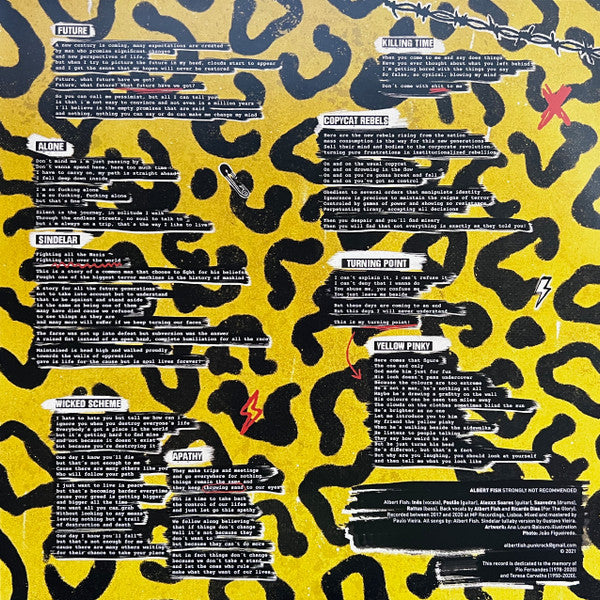 FUTURE
A new century is coming, many expectations are created
by men who promise significant changes
and new perspectives of life,
but when I try to picture the future in my head, clouds start to appear
and I got the sense that my hopes will never be restored
Future, what future have we got?
Future, what future? What future have we got?
So you can call me pessimist, but all I can tell you
is that i'm not easy to convince and not even in a million years
I'll believe in the empty promises that are said
and nothing, nothing you can say or do can make me change my mind
ALONE
Don't mind me i'm just passing by
Don't wanna spend here, here too much time
I have to carry on, my path is straight ahead
I fell deep down inside
I'm so fucking alone
I'm so fucking, fucking alone
but that's fine
Silent is the journey, in solitude I walk
Through the endless streets, no soul to talk to
but i'm always on a trip, that's the way I like to live
SINDELAR
Fighting all the Nazis
Fighting all over the world
This is a story of a common man that choose to fight for his beliefs
Fought one of the biggest terror machines in the history of mankind
A story for all the future generations
not to take into account but to understand
that to be against and stand aside
is the same as being one of them
many have died cause we refused
to see things as they are
and many more will suffer if we keep turning our faces
The force powered into defeat but conversion was the answer
A raised fist instead of an open hand, complete humiliation for all the race
Maintained is head high and walked proudly
towards the walls of oppression
gave is life for the cause but is soul lives forever
WICKED SCHEME
I hate to hate you but tell me how can i
ignore you when you destroy everyone's life
Everybody's got a place in the world
but it's getting hard to find mine
and not because it doesn't exist
but because you're destroying it
One day I know you'll die
but that's not enough to me
Cause there are many others like you
Who will follow your path
I just want to live in peace
but that's becoming harder everytime
cause your greed is getting bigger
and bigger all the time
You want all you can grab
Without looking to any means
leaving nothing but a trail
of destruction and death
One day I know you'll fall
but that's not enough for me
cause there are many others waiting
for their chance to take your place
APATHY
They make trips and meetings
and go everywhere for nothing
things remain the same and
they keep throwing sand to our eyes
It is time to take back
the control of our life
and just let go this apathy
We follow along believing
that if things don't change
well it's not because they
don't want to
but because they can't do more
but in fact things don't change
because we don't take a stand
and let the ones who rule
make what they want of our lives
KILLING TIME
When you come to me and say those things
Have you ever thought about what you left behind?
I'm getting bored with the things you say
So false, so cynical, blowing my mind
Don't come with shit to me
COPYCAT REBELS
Here are the new rebels rising from the nation
mass consumption is the way for this new generations
Sell their mind and bodies to the corporate revolution
Turning pure frustrations in institutionalized rebellion
On and on the usual copycat
On and on drowning in the flow
On and on you're gonna break and fall
On and on you've got no control
Obedient to several orders that manipulate identity
Ignorance is precious to maintain the reigns of terror
Controled by games of power and showing no resistance
Perpetuating tirany, accepting all decisions
Then you despair and you'll find misery
Then you will find that not everything is exactly as they told you!
TURNING POINT
I can't explain it, I can't refuse it
I can't deny that I wanna do
You abuse me, you confuse me
You just leave me beside
But these days are coming to an end
But this days I will never understand
This is my turning point!
YELLOW PINKY
Here comes that figure
The one and only
God made him just for fun
His look doesn't pass undercover
Because the colours are too extreme
He's not a man, he's nothing at all
Maybe he's drewing a graffity on the wall
His colours can be seen ten miles away
The clouds on the clothes sometimes blind the sun
He's brighter as no one
Let me introduce you to him
My friend the yellow pinky
When he's walking beside the sidewalks
He listen to people talking
They say how weird he is
But he just turns his back
He's different, but that's a fact
but why are you laughing, you should look at yourself
and then tell me what you look like
ALBERT FISH STRONGLY NOT RECOMMENDED
Albert Fish: Inês (vocals), Pestão (guitar), Alexxx Soares (guitar), Saavedra (drums),
Rattus (bass). Back vocals by Albert Fish and Ricardo Dias (For The Glory).
Recorded between 2017 and 2020 at MF Recordings, Lisboa. Mixed and mastered by
Paulo Vieira. All songs by: Albert Fish. Sindelar lullaby version by Gustavo Vieira.
Artwork: Ana Louro Beicuro.illustration
Photo: João Figueiredo.
albertfish.punkrock@gmail.com
© 2021
This record is dedicated to the memory of
Pio Fernandes (1978-2020)
and Teresa Carvalho (1950-2020).